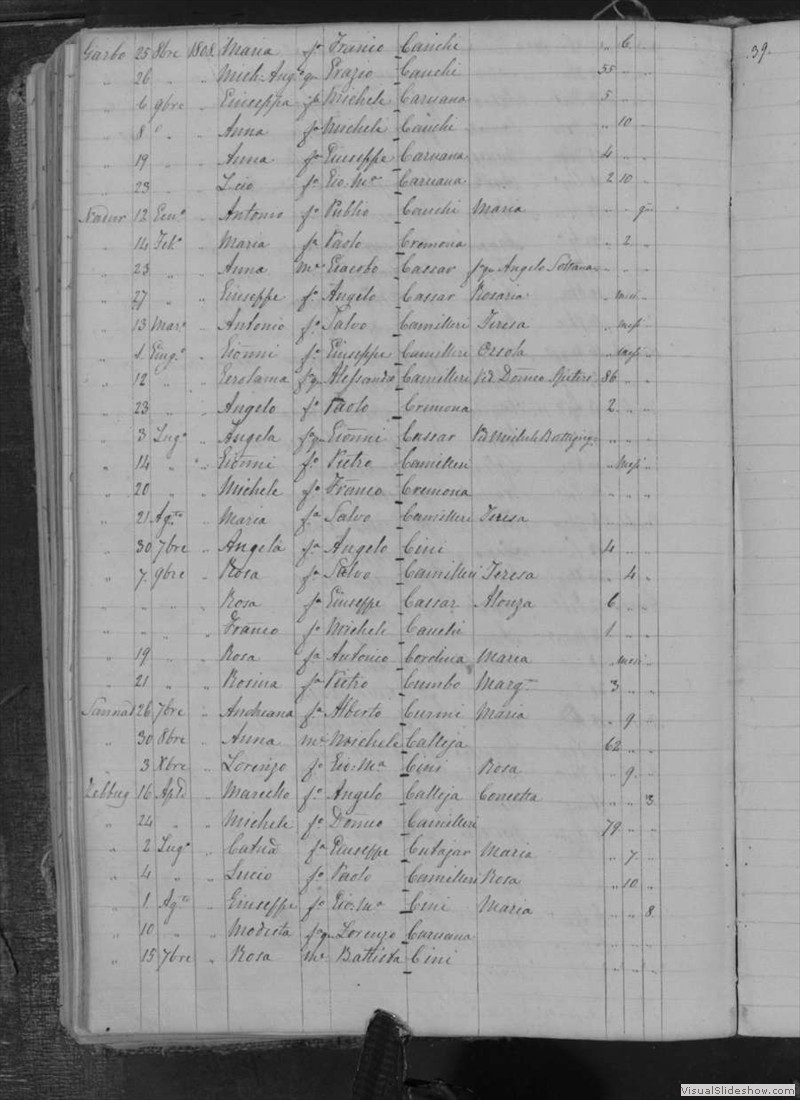 39.
Garbo 25 8bre 1808 Maria fa Franco Cauchi „ 6 „
„ 26 „ „ Mich: Ango qm Grazio Cauchi 55 „ „
„ 6 9bre „ Giuseppa fa Michele Caruana 5 „ „
„ 8 „ „ Anna fa Michele Cauchi „ 10 „
„ 19 „ „ Anna fa Giuseppe Caruana 4 „ „
„ 23 „ „ Gio: Ma Caruana 2 10 „
Nadur 12 Genо „ Antonio fo Publio Cauchi Maria „ „
„ 14 Febo „ Maria fa Paolo Cremona „ 2 „
„ 23 „ „ Anna me Giacobo Cassar fa qm Angelo „ „ „
„ 27 „ „ Giuseppe fo Angelo Cassar Rosaria „ mesi „
„ 13 Maro „ Antonio fo Salvo Camilleri Teresa „ mesi „
„ 1 Giugo „ Gionni fo Giuseppe Camilleri Orsola „ mesi „
„ 12 „ „ Gerolama fa qm Alessandro Camilleri Va Domco Spiteri 86 „ „
„ 23 „ „ Angelo fo Paolo Cremona 2 „ „
„ 3 Lugo „ Angela fa qm Gionni Cassar Va Michele „ „ „
„ 14 „ „ Gionni fo Pietro Camilleri „ mesi „
„ 20 „ „ Michele fo Franco Cremona „ „ „
„ 21 Agto „ Maria fa Salvo Camilleri Teresa „ „ „
„ 30 7bre „ Angela fa Angelo Cini 4 „ „
„ 7 9bre „ Rosa fa Salvo Camilleri Teresa „ 4 „
„ „ „ „ Rosa fa Giuseppe Cassar Alonza 6 „ „
„ „ „ „ Franco fo Michele Cauchi 1 „ „
„ 19 „ „ Rosa fa Antonio Cordina Maria „ mesi „
„ 21 „ „ Rosina fa Pietro Cumbo Marga 3 „ „
Sannat 26 7bre „ Andreana fa Alberto Curmi Maria „ 9 „
„ 30 8bre „ Anna me Michele Calleja 62 „ „
„ 3 Xbre „ Lorenzo fo Gio: Ma Cini Rosa „ 9 „
Zebbug 16 Aple „ Marcello fo Angelo Calleja Concetta „ „ 3
„ 24 „ „ Michele fo Domco Camilleri 79 „ „
„ 2 Lugo „ Catna fa Giuseppe Cutajar Maria „ 7 „
„ 4 „ „ Lucio fo Paolo Camilleri Rosa „ 10 „
„ 1 Agto „ Giuseppe fo Gio: Ma Cini Maria „ „ 8
„ 10 „ „ Modesta fa qm Lorenzo Caruana „ „ „
„ 15 7bre „ Rosa me Battista Cini „ „ „
VisualSlideshow.com